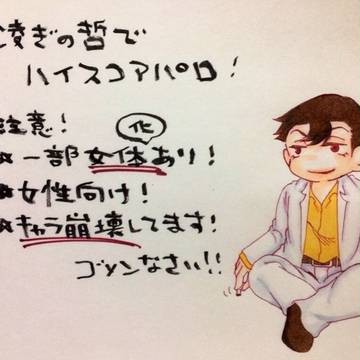 凌ぎの哲で
ハイスコアパロ!
注意!
★一部女体化あり!
★女性向け!
★キャラ崩壊してます!
ゴメンなさい!!